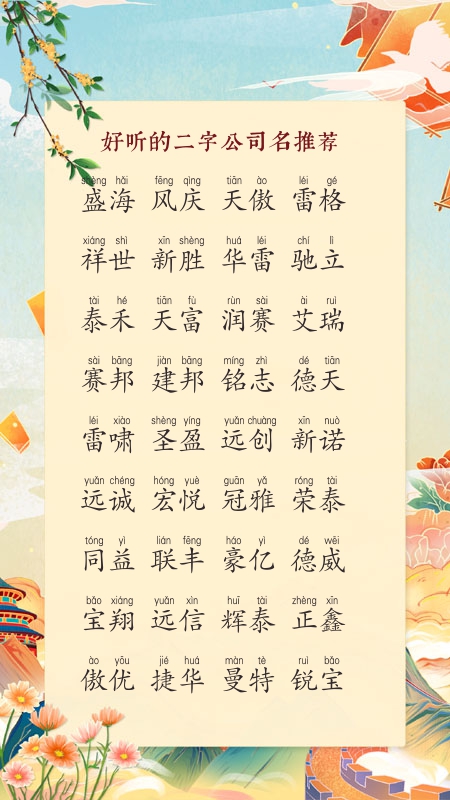 好听的二字公司名推荐
shèng hǎi fēng qìng tiān ào léi gé
盛海 风庆 天傲 雷格
xiáng shì xīn shèng huá léi chí lì
祥世 新胜 华雷 驰立
tài hé tiān fù rùn sài ài ruì
泰禾 天富 润赛 艾瑞
sài bāng jiàn bāng míng zhì dé tiān
赛邦 建邦 铭志 德天
léi xiào shèng yíng yuǎn chuàng xīn nuò
雷啸 圣盈 远创 新诺
yuǎn chéng hóng yuè guān yǎ róng tài
远诚 宏悦 冠雅 荣泰
tóng yì lián fēng háo yì dé wēi
同益 联丰 豪亿 德威
bǎo xiáng yuǎn xìn huī tài zhèng xīn
宝翔 远信 辉泰 正鑫
ào yōu jié huá màn tè ruì bǎo
傲优 捷华 曼特 锐宝